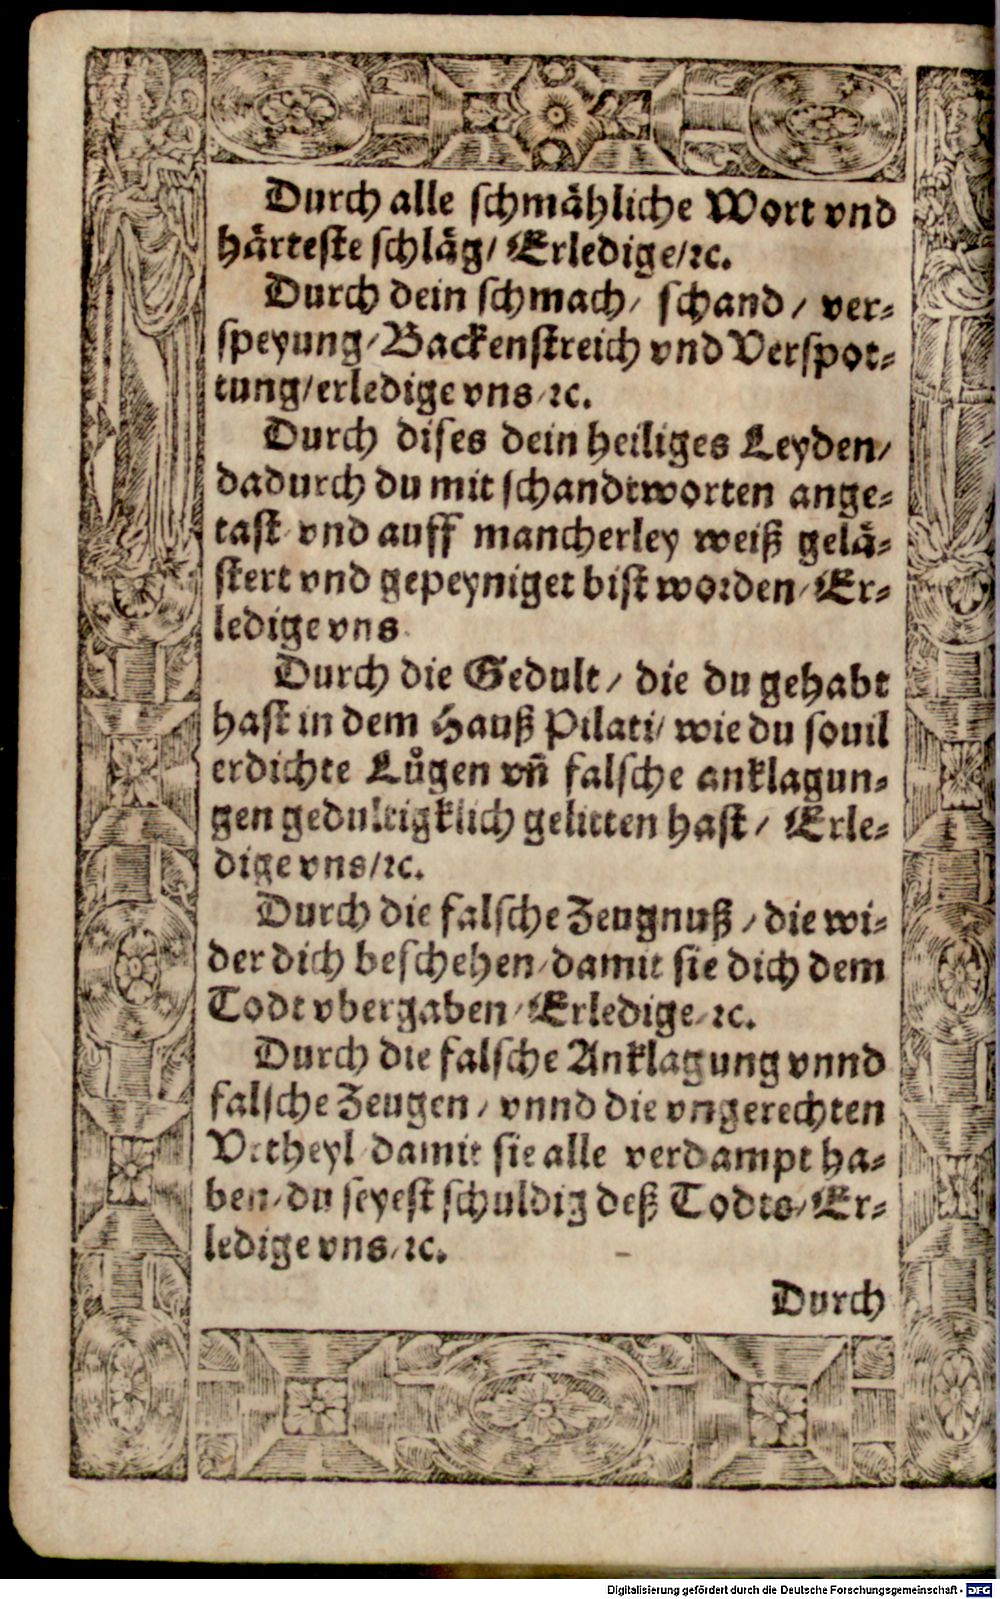 Durch alle schmähliche Wort vnd
härteste schläg/ Erledige/ꝛc.
Durch dein schmach/ schand/ ver⸗
speyung/Backenstreich vnd Verspot⸗
tung/erledige vns/ꝛc.
Durch dises dein heiliges Leyden/
dadurch du mit schandtworten ange⸗
tast vnd auff mancherley weiß gelä⸗
stert vnd gepeyniget bist worden/Er⸗
ledige vns.
Durch die Gedult/ die du gehabt
hast in dem Hauß Pilati/ wie du souil
erdichte Lůgen vñ falsche anklagun⸗
gen gedultigklich gelitten hast/ Erle⸗
dige vns/ꝛc.
Durch die falsche Zeugnuß/die wi⸗
der dich beschehen/damit sie dich dem
Todt vbergaben/Erledige/ꝛc.
Durch die falsche Anklagung vnnd
falsche Zeugen/ vnnd die vngerechten
Vrtheyl damit sie alle verdampt ha⸗
ben/du seyest schuldig deß Todts/Er⸗
ledige vns/ꝛc.
Durch
Digitalisierung gefördert durch die Deutsche Forschungsgemeinschaft - DFG